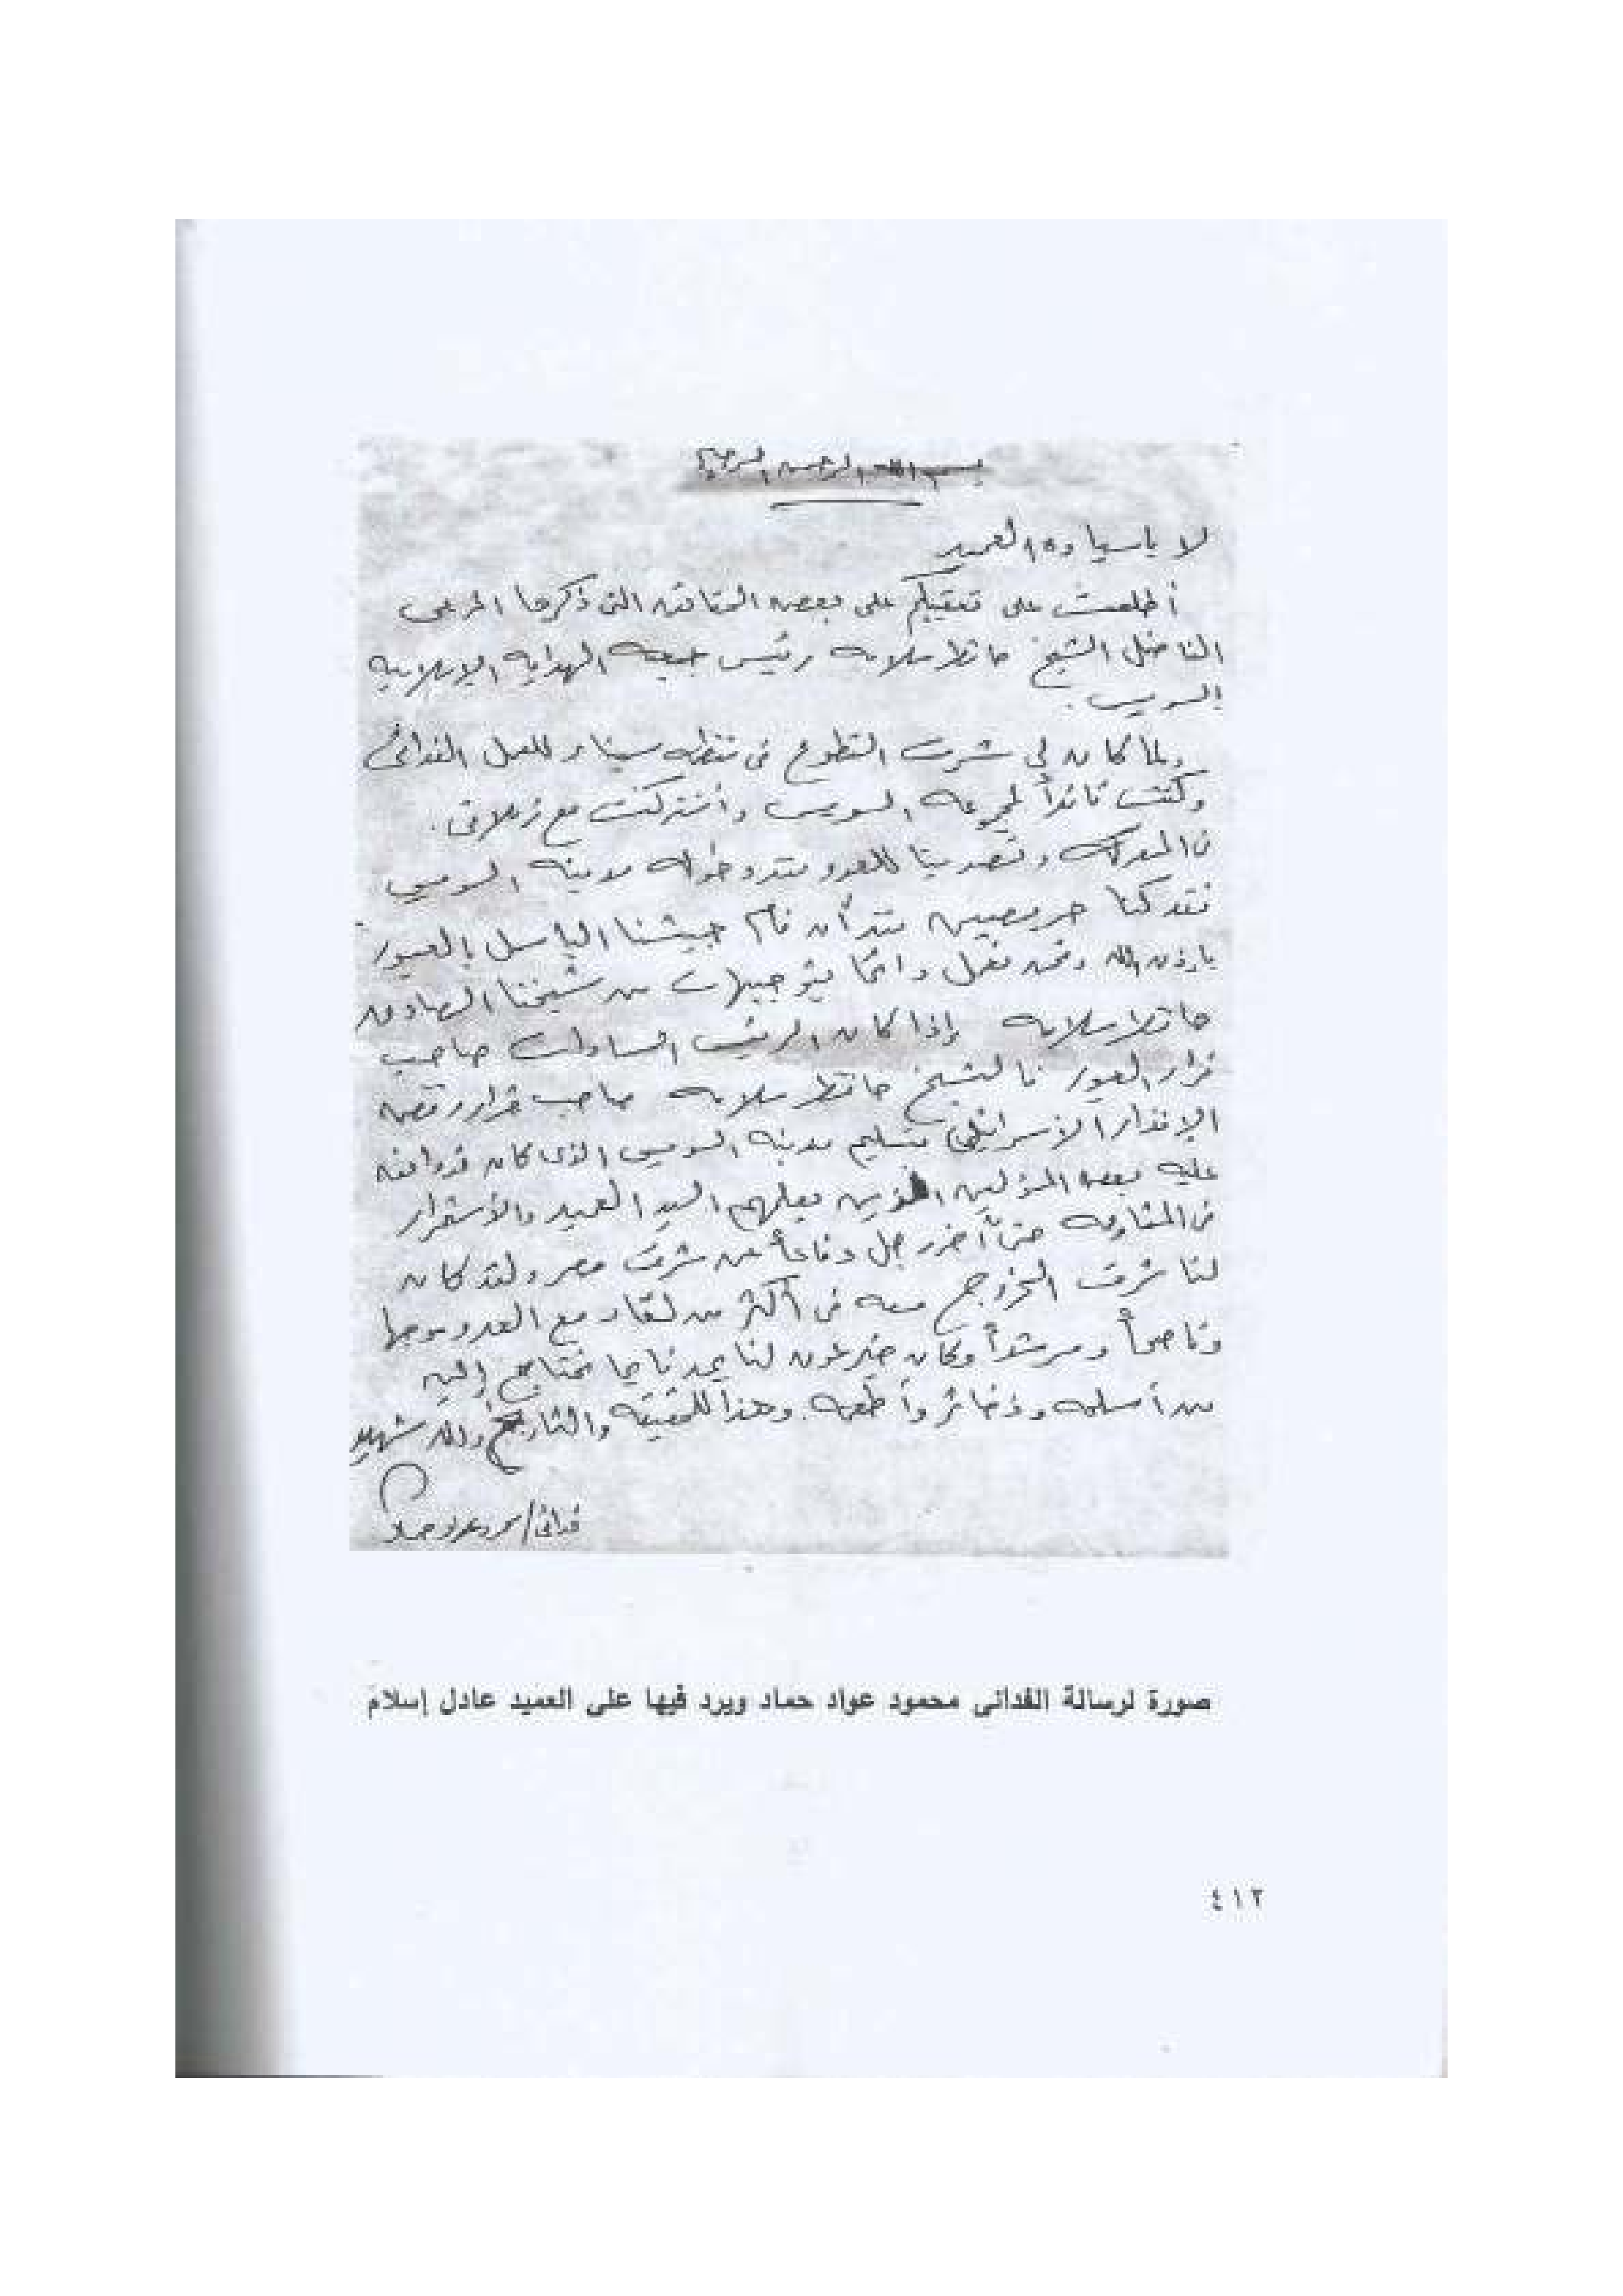 بسم الله الرحمن الرحيم
لا يا سيادة العميد
أطلعت على تعقيبكم على بعض الحقائق التى ذكرها المربى
الفاضل الشيخ حافظ سلامه رئيس جمعيه الهدايه الإسلاميه
بالسويس.
ولما كان لى شرف التطوع فى منظمه سيناء للعمل الفدائى
وكنت قائداً لمجموعه السويس وأشتركت مع زملائى.
فى المعركه وتصدينا للعدو عند دخوله مدينه السويس
فقد كنا حريصين منذ أن قام جيشنا الباسل بالعبور
بإذن الله ونحن نعمل دائماً بتوجيهات من شيخنا الصادق
حافظ سلامه وإذا كان الرئيس السادات صاحب
قرار العبور فالشيخ حافظ سلامه صاحب قرار رفض
الإنذار الأسرائيلى بتسليم مدينه السويس الذى كان قد وافق
عليه بعض المسؤلين الذين يعلمهم السيد العميد والأستمرار
فى المقاومه حتى أخر رجل دفاعاً عن شرف مصر ولقد كان
لنا شرف الخروج معه فى أكثر من لقاء مع العدو موجها
وناصحاً ومرشداً وكان خير عون لنا يمدنا بما نحتاج إليه
من أسلحه وذخائر وأطعمه. وهذا للحقيقه والتاريخ والله شهيد
فدائى/ محمود عواد حماد
صورة لرسالة الفدائى محمود عواد حماد ويرد فيها على العميد عادل إسلام
٤١٢